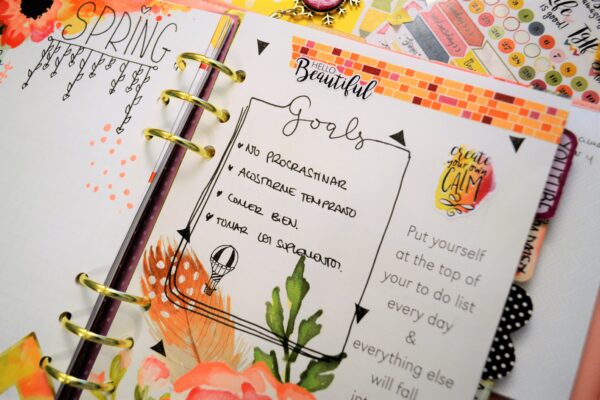 SPRING
HELLO
Beautiful
Goals
NO PROCRASTINAR
ACOSTARNE TEMPRANO
COMER BIEN.
TOMAR LOS SUPLEMENTOS.
create
your own
CALM
Put yourself
at the top of
your to do list
every day
&
everything else
will fall